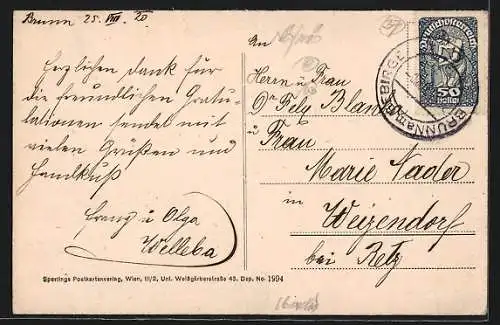 Brunn 25. VIII. 20
Herzlichen Dank für
die freundlichen Gratu-
lationen sendet mit
vielen Grüßen und
Handkuß
Franz u Olga
Welleba
An
Herrn und Frau
Dr Pely Blanka
u Frau
Marie Nader
in
Weizendorf
bei Retz
Deutschösterreich
50
Heller
BRUNN am GEBIRGE
Sperlings Postkartenverlag, Wien, III/2, Unt. Weißgärberstraße 43. Dep. No. 1994